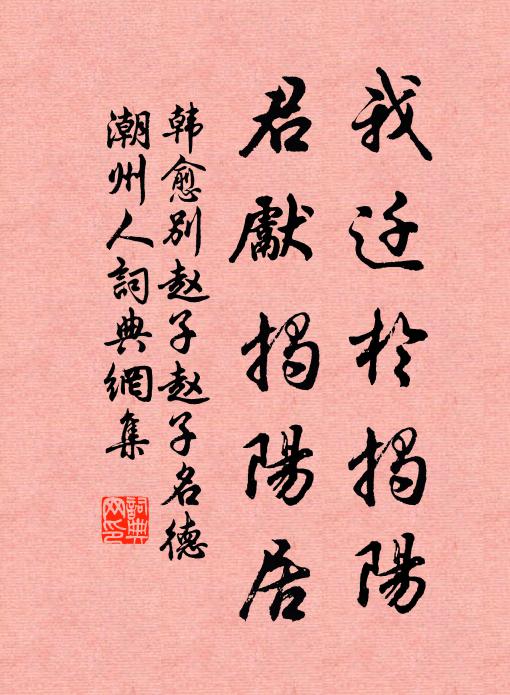 我迁於揭陽
君獻揭陽居
韩愈别赵子赵子名德
潮州人詞典網集
詞典
网印